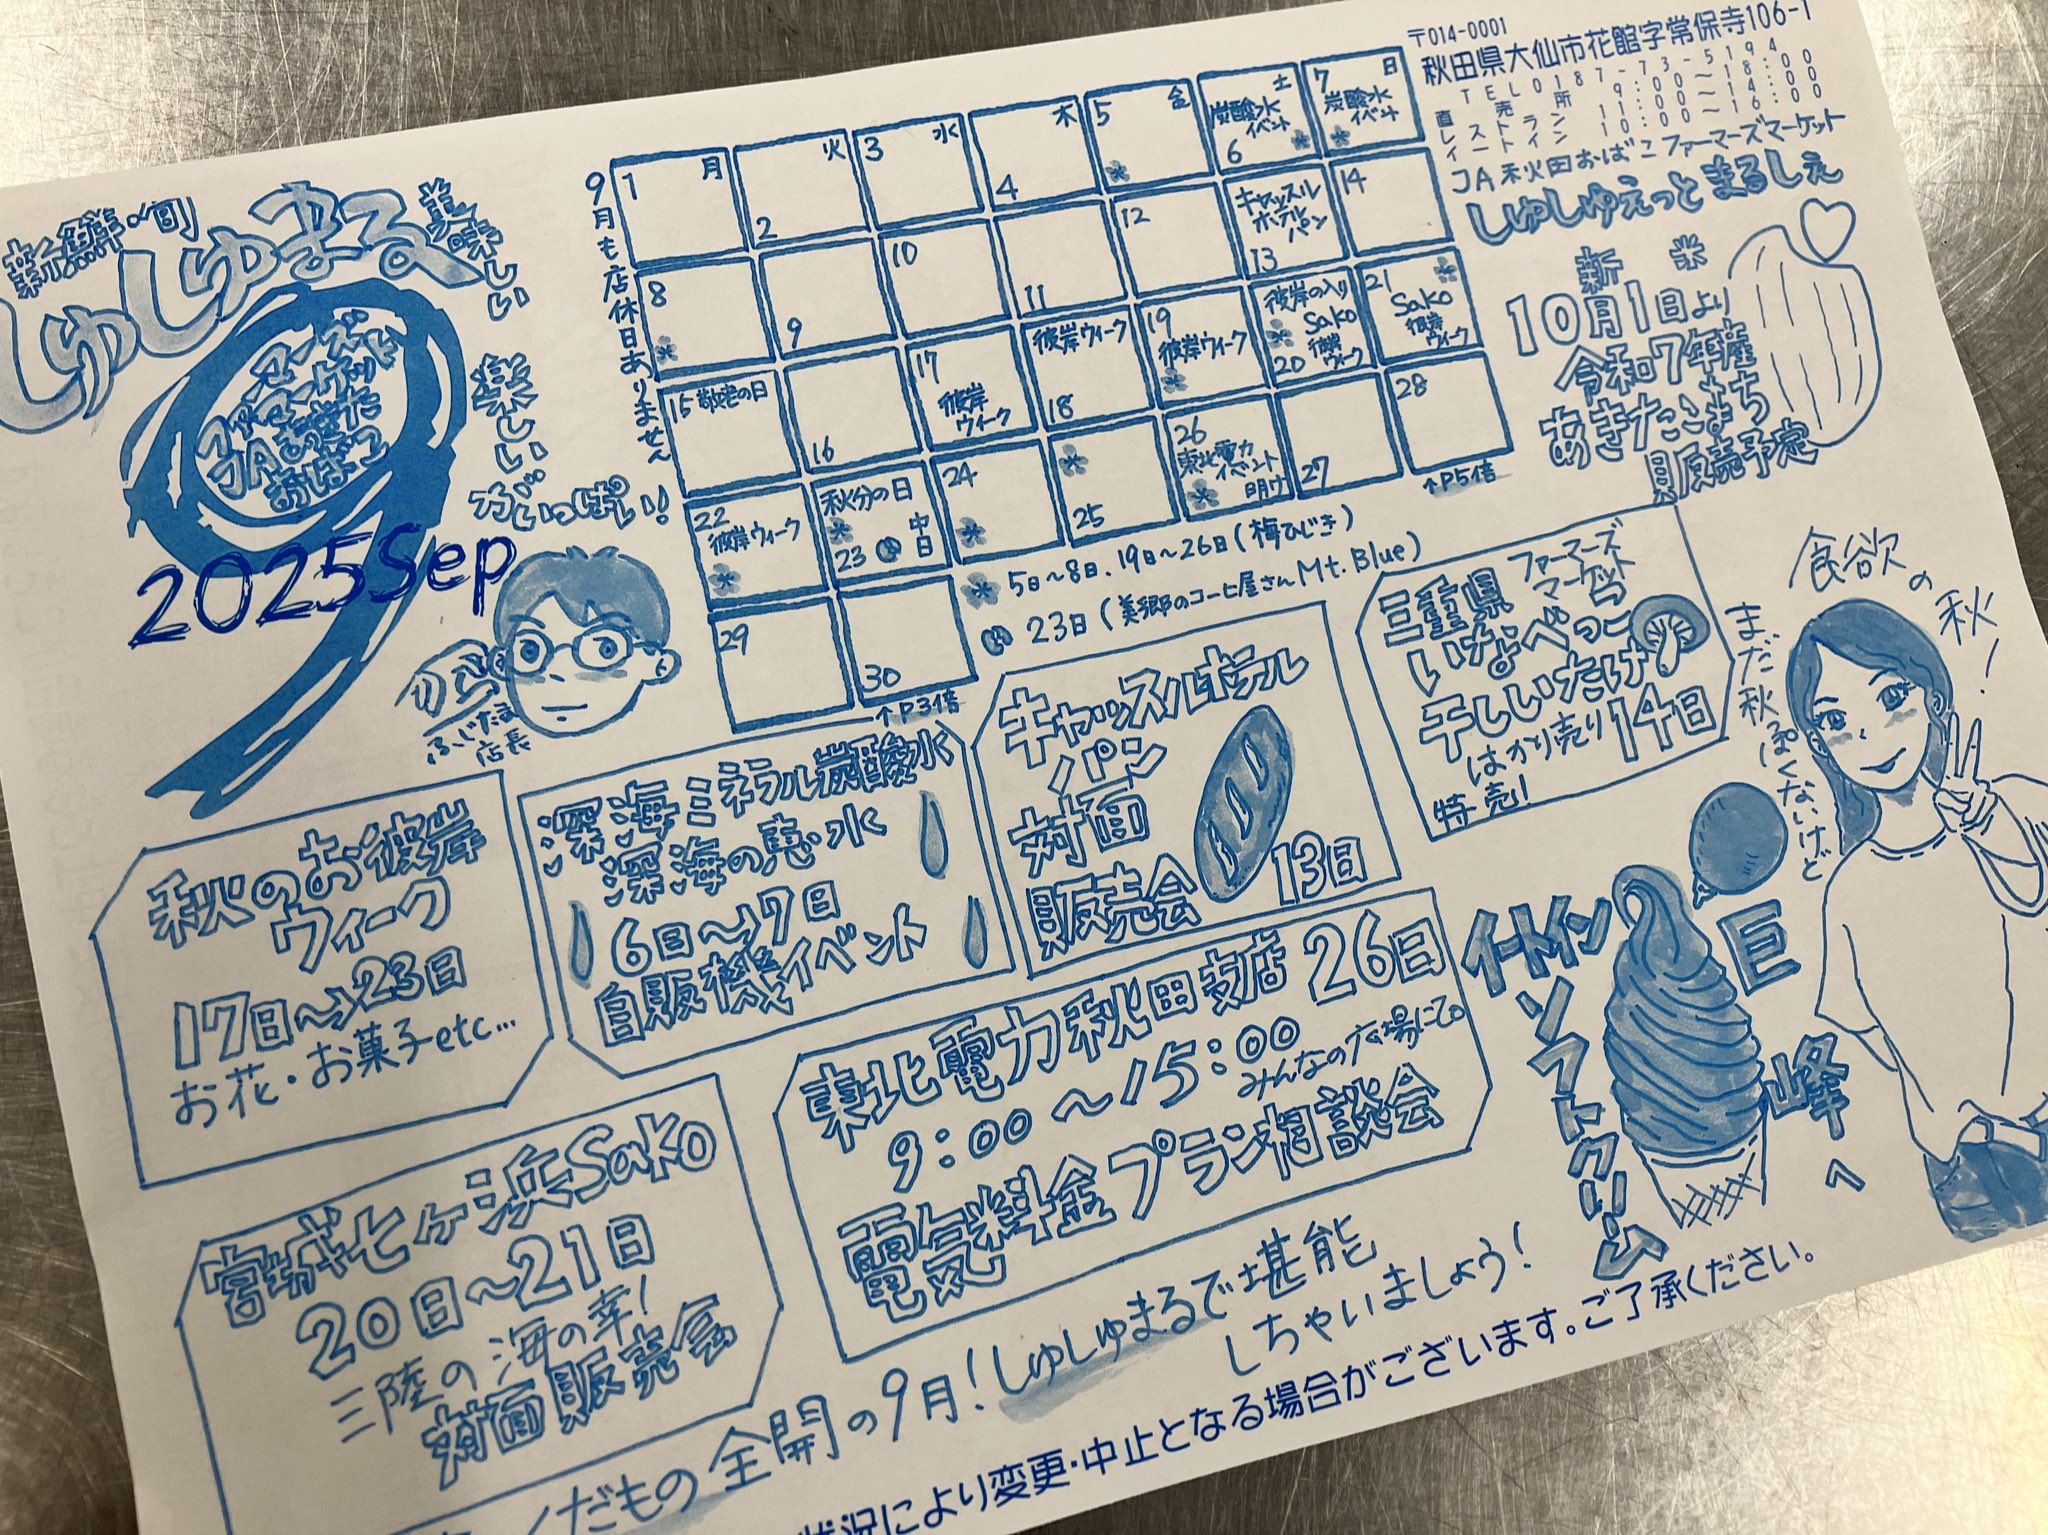 新鮮・旬
しゅしゅまる
美味しい
楽しい
がいっぱい!
ファーマーズ
マーケット
JAあきた
おばこ
2025Sep
ふじたま
店長
9月も店休日ありません
1 月
2 火
3 水
4 木
5 金
6 土 炭酸水イベント
7 日 炭酸水イベント
8
9
10
11
12
13 キャッスルホテルパン
14
15 敬老の日
16
17 彼岸ウィーク
18 彼岸ウィーク
19 彼岸ウィーク
20 彼岸の入り Sako 彼岸ウィーク
21 Sako 彼岸ウィーク
22 彼岸ウィーク
23 秋分の日 中日
24
25
26 東北電力イベント 明け
27
28
↑P5倍
29
30
↑P3倍
5日~8日、19日~26日(梅ひじき)
23日(美郷のコーヒ屋さんMt.Blue)
〒014-0001
秋田県大仙市花館字常保寺106-1
TEL0187-73-5194
直売所 9:00~18:00
レストラン 11:00~14:00
イートイン 10:00~16:00
JA秋田おばこファーマーズマーケット
しゅしゅえっとまるしぇ
新米
10月1日より
令和7年産
あきたこまち
販売予定
三重県ファーマーズマーケット
いなべっこ
干ししいたけ
はかり売り 14日
特売!
食欲の秋!
まだ秋っぽくないけど
キャッスルホテル
パン
対面
販売会
13日
深海ミネラル炭酸水
深海の恵み水
6日~7日
自販機イベント
秋のお彼岸
ウィーク
17日~23日
お花・お菓子etc...
宮城七ヶ浜Sako
20日~21日
三陸の海の幸!
対面販売会
東北電力秋田支店 26日
9:00~15:00
みんなの広場にて。
電気料金プラン相談会
イートイン
ソフトクリーム
巨峰へ
くだもの全開の9月!しゅしゅまるで堪能
しちゃいましょう!
状況により変更・中止となる場合がございます。ご了承ください。